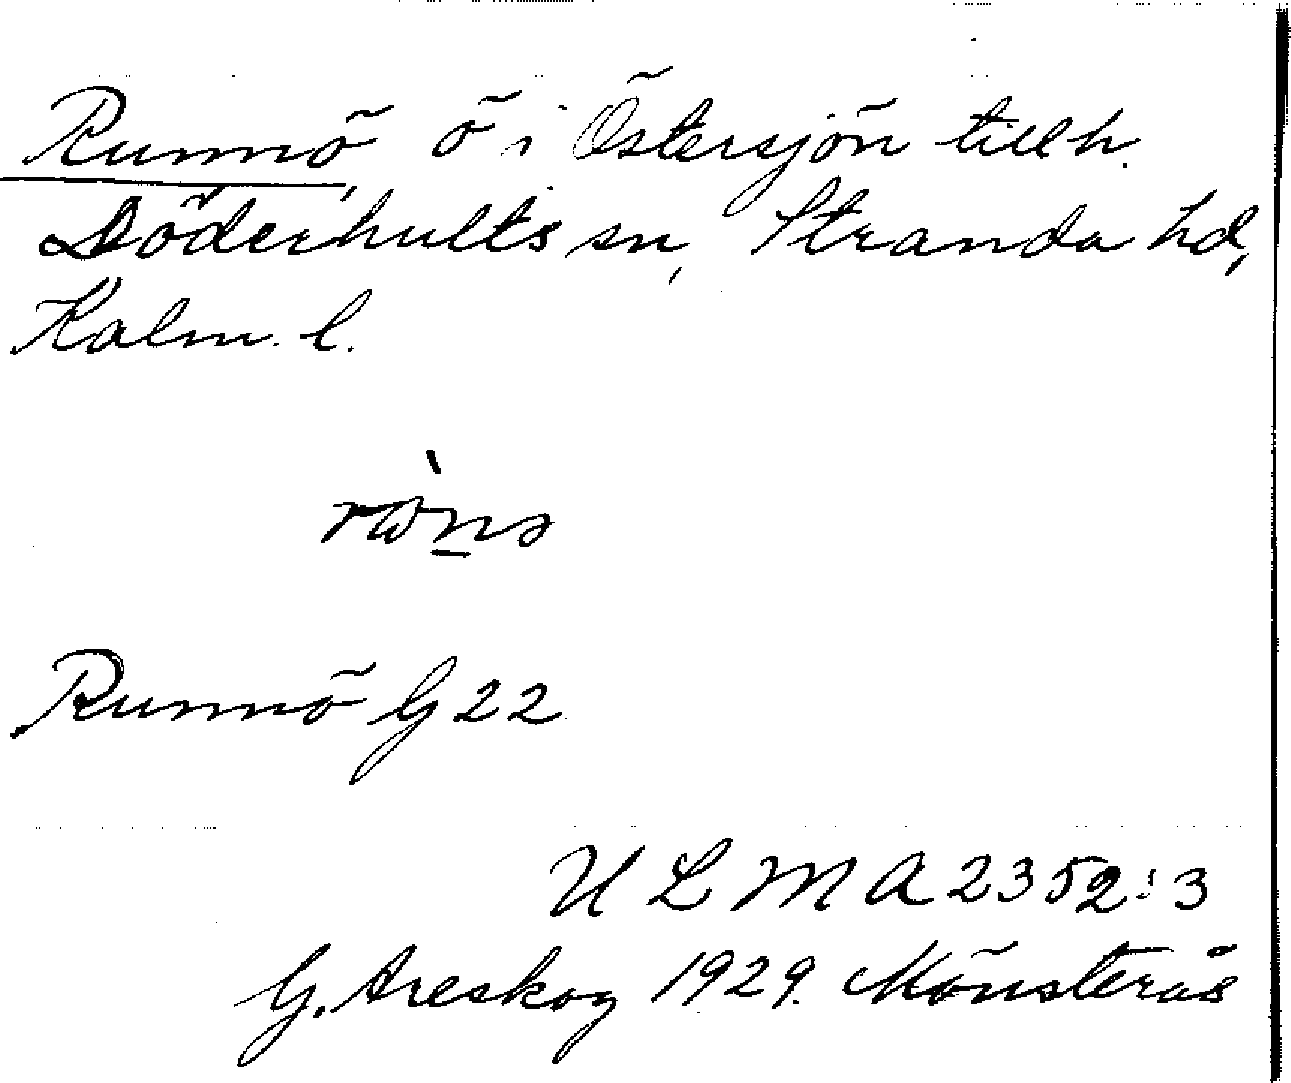 Runnö, ö i Östersjön tillh.
Döderhults sn, Stranda hd,
Kalm. l.
Runnö G 22
U L M A 2352:3
G. Areskog 1929. Mönsterås